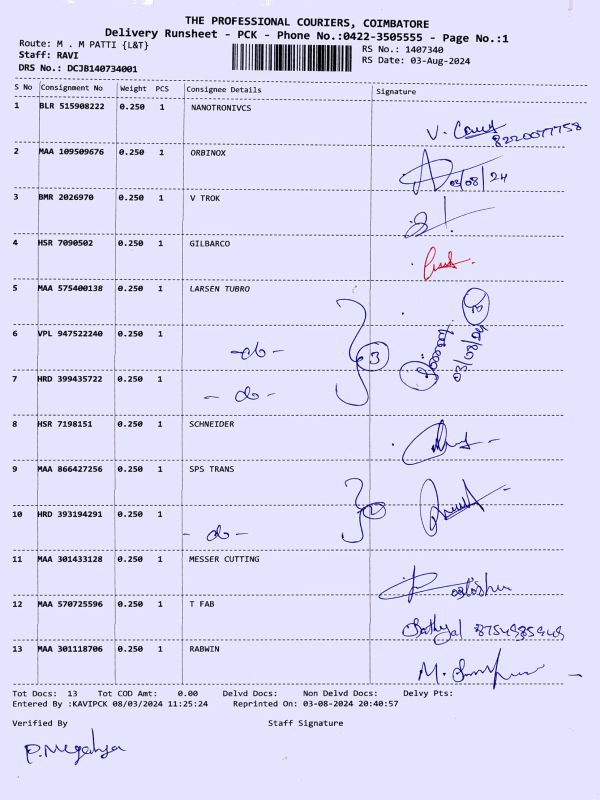 THE PROFESSIONAL COURIERS, COIMBATORE
Delivery Runsheet - PCK - Phone No.:0422-3505555 - Page No.:1
Route: M . M PATTI {L&T} RS No.: 1407340
Staff: RAVI RS Date: 03-Aug-2024
DRS No.: DCJB140734001
S No Consignment No Weight PCS Consignee Details Signature
1 BLR 515908222 0.250 1 NANOTRONIVCS
8220077758
2 MAA 109509676 0.250 1 ORBINOX
03/08/24
3 BMR 2026970 0.250 1 V TROK
4 HSR 7090502 0.250 1 GILBARCO
5 MAA 575400138 0.250 1 LARSEN TUBRO
6 VPL 947522240 0.250 1 -do- 3
03/08/24
7 HRD 399435722 0.250 1 -do-
8 HSR 7198151 0.250 1 SCHNEIDER
9 MAA 866427256 0.250 1 SPS TRANS
2
10 HRD 393194291 0.250 1 -do-
11 MAA 301433128 0.250 1 MESSER CUTTING
12 MAA 570725596 0.250 1 T FAB
13 MAA 301118706 0.250 1 RABWIN
Tot Docs: 13 Tot COD Amt: 0.00 Delvd Docs: Non Delvd Docs: Delvy Pts:
Entered By :KAVIPCK 08/03/2024 11:25:24 Reprinted On: 03-08-2024 20:40:57
Verified By Staff Signature